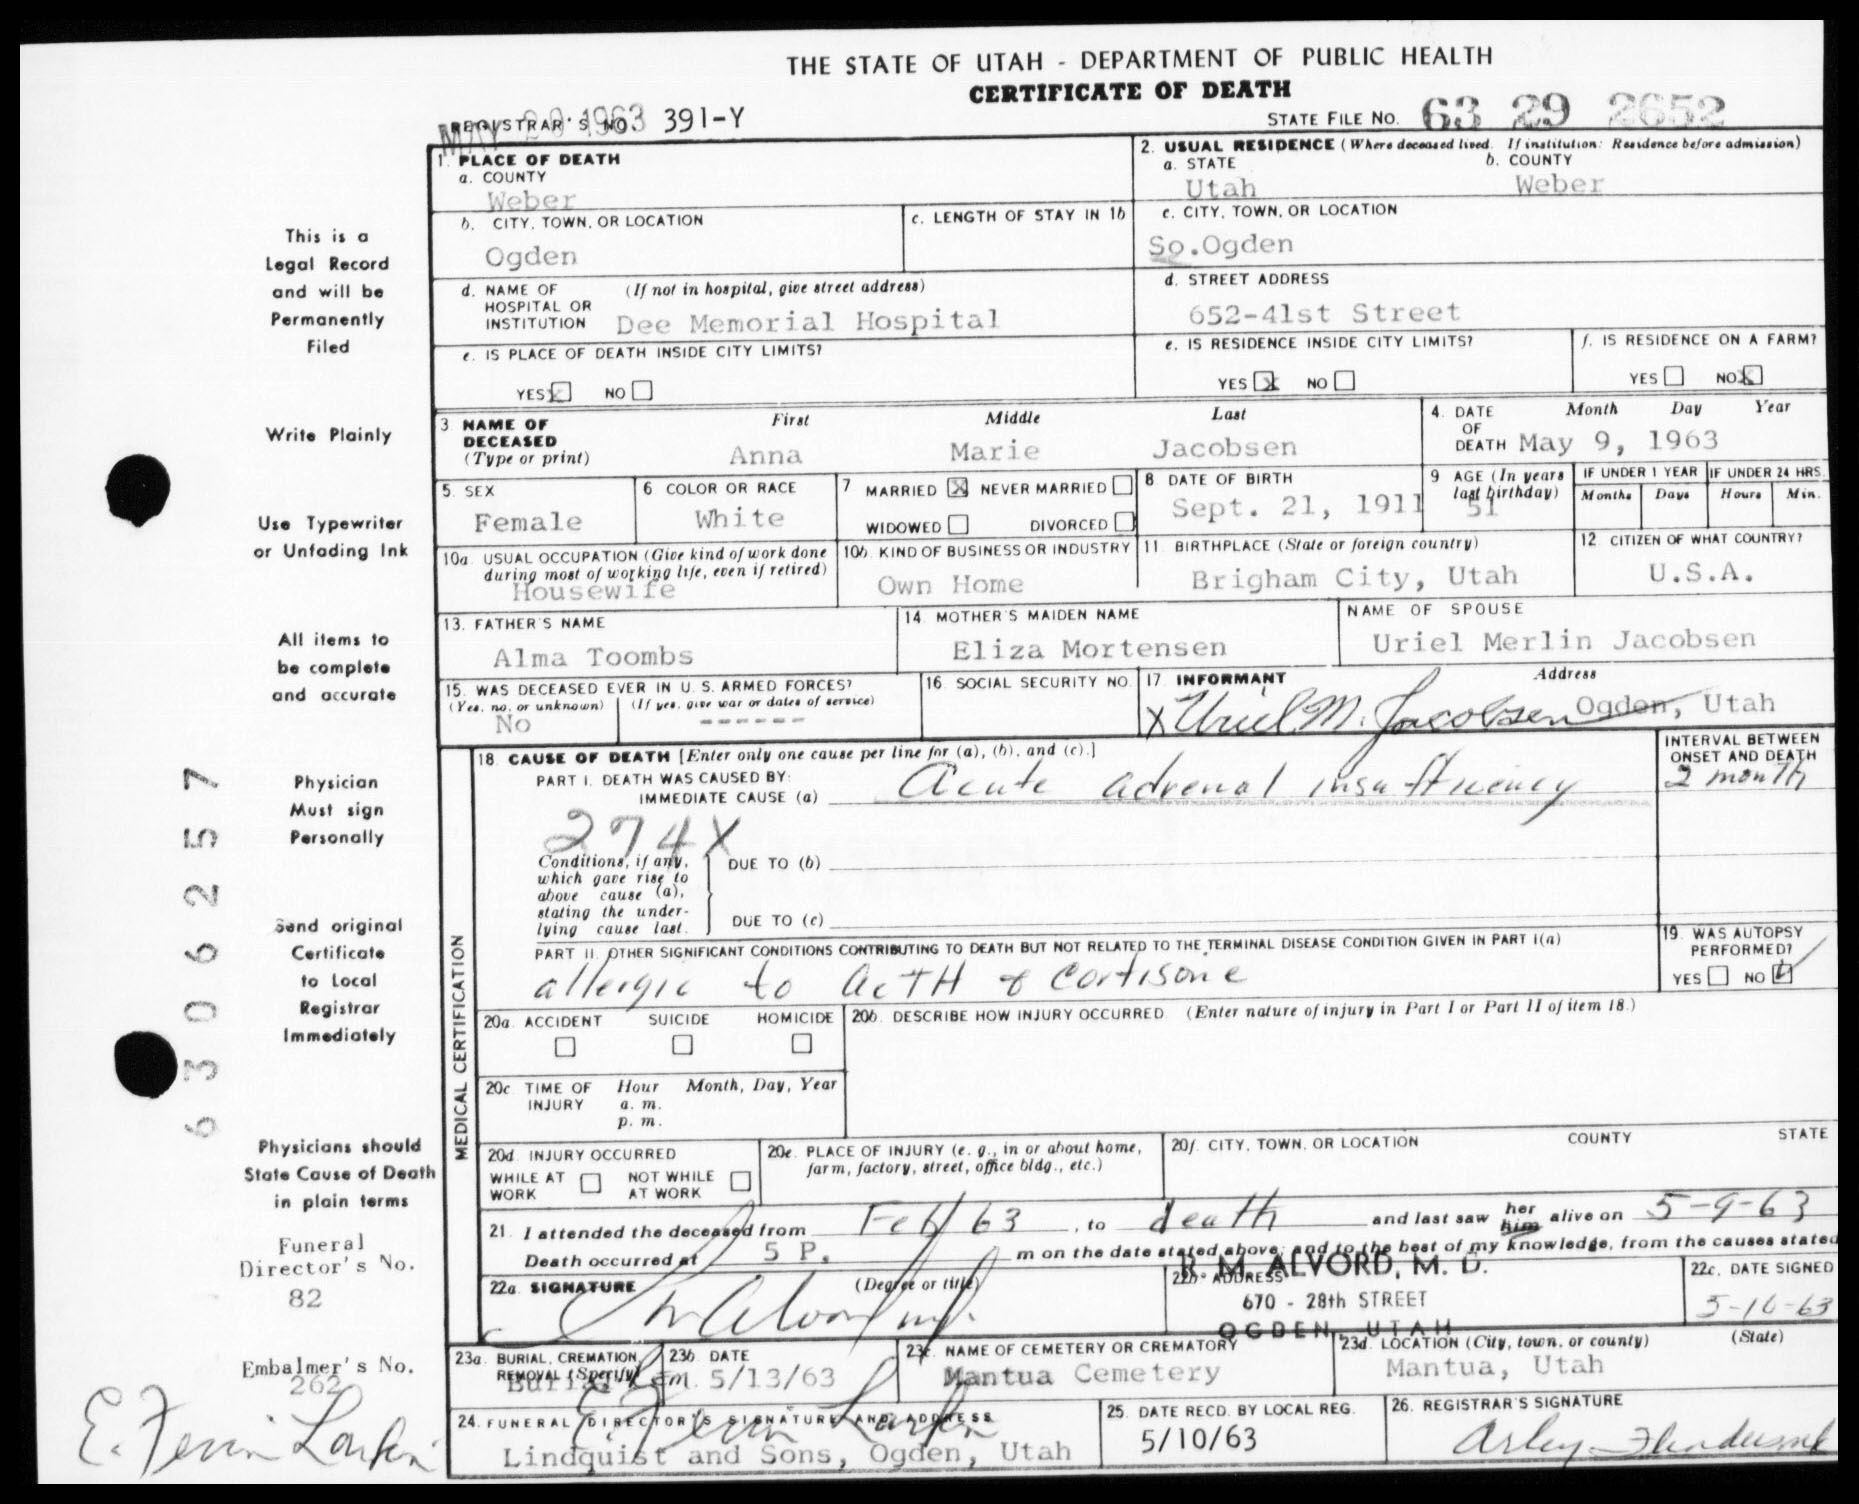 THE STATE OF UTAH - DEPARTMENT OF PUBLIC HEALTH
CERTIFICATE OF DEATH
MAY 20 1963
REGISTRAR'S NO. 391-Y
STATE FILE NO. 63 29 2652
This is a
Legal Record
and will be
Permanently
Filed
Write Plainly
Use Typewriter
or Unfading Ink
All items to
be complete
and accurate
Physician
Must sign
Personally
Send original
Certificate
to Local
Registrar
Immediately
Physicians should
State Cause of Death
in plain terms
Funeral
Director's No.
82
Embalmer's No.
262
E. Fervin Larkin
6306257
1. PLACE OF DEATH
a. COUNTY
Weber
2. USUAL RESIDENCE (Where deceased lived. If institution: Residence before admission)
a. STATE
Utah
b. COUNTY
Weber
b. CITY, TOWN, OR LOCATION
Ogden
c. LENGTH OF STAY IN 1b
c. CITY, TOWN, OR LOCATION
So.Ogden
d. NAME OF (If not in hospital, give street address)
HOSPITAL OR
INSTITUTION Dee Memorial Hospital
d. STREET ADDRESS
652-41st Street
e. IS PLACE OF DEATH INSIDE CITY LIMITS?
YES X NO
e. IS RESIDENCE INSIDE CITY LIMITS?
YES X NO
f. IS RESIDENCE ON A FARM?
YES NO X
3 NAME OF
DECEASED
(Type or print)
First Middle Last
Anna Marie Jacobsen
4. DATE
OF
DEATH
Month Day Year
May 9, 1963
5. SEX
Female
6 COLOR OR RACE
White
7 MARRIED X NEVER MARRIED
WIDOWED DIVORCED
8 DATE OF BIRTH
Sept. 21, 1911
9 AGE (In years
last birthday)
51
IF UNDER 1 YEAR
Months Days
IF UNDER 24 HRS.
Hours Min.
10a. USUAL OCCUPATION (Give kind of work done
during most of working life, even if retired)
Housewife
10b. KIND OF BUSINESS OR INDUSTRY
Own Home
11. BIRTHPLACE (State or foreign country)
Brigham City, Utah
12. CITIZEN OF WHAT COUNTRY?
U.S.A.
13. FATHER'S NAME
Alma Toombs
14. MOTHER'S MAIDEN NAME
Eliza Mortensen
NAME OF SPOUSE
Uriel Merlin Jacobsen
15. WAS DECEASED EVER IN U. S. ARMED FORCES?
(Yes, no, or unknown) (If yes, give war or dates of service)
No ------
16. SOCIAL SECURITY NO.
17. INFORMANT Address
X Uriel M. Jacobsen Ogden, Utah
MEDICAL CERTIFICATION
18. CAUSE OF DEATH [Enter only one cause per line for (a), (b), and (c).]
PART I. DEATH WAS CAUSED BY:
IMMEDIATE CAUSE (a) Acute adrenal insufficiency
INTERVAL BETWEEN
ONSET AND DEATH
2 month
274X
Conditions, if any,
which gave rise to
above cause (a),
stating the under-
lying cause last.
DUE TO (b)
DUE TO (c)
PART II. OTHER SIGNIFICANT CONDITIONS CONTRIBUTING TO DEATH BUT NOT RELATED TO THE TERMINAL DISEASE CONDITION GIVEN IN PART I(a)
allergic to ACTH & Cortisone
19. WAS AUTOPSY
PERFORMED?
YES NO
20a. ACCIDENT SUICIDE HOMICIDE
20b. DESCRIBE HOW INJURY OCCURRED. (Enter nature of injury in Part I or Part II of item 18.)
20c. TIME OF Hour Month, Day, Year
INJURY a. m.
p. m.
20d. INJURY OCCURRED
WHILE AT
WORK
NOT WHILE
AT WORK
20e. PLACE OF INJURY (e. g., in or about home,
farm, factory, street, office bldg., etc.)
20f. CITY, TOWN, OR LOCATION COUNTY STATE
21. I attended the deceased from Feb 63, to death and last saw her him alive on 5-9-63
Death occurred at 5 P. m on the date stated above; and to the best of my knowledge, from the causes stated
22a. SIGNATURE (Degree or title)
Alvord M.D.
22b. ADDRESS
R. M. ALVORD, M. D.
670 - 28th STREET
OGDEN, UTAH
22c. DATE SIGNED
5-10-63
23a. BURIAL, CREMATION,
REMOVAL (Specify)
Burial Rem.
23b. DATE
5/13/63
23c. NAME OF CEMETERY OR CREMATORY
Mantua Cemetery
23d. LOCATION (City, town, or county) (State)
Mantua, Utah
24. FUNERAL DIRECTOR'S SIGNATURE AND ADDRESS
E. Fervin Larkin
Lindquist and Sons, Ogden, Utah
25. DATE RECD. BY LOCAL REG.
5/10/63
26. REGISTRAR'S SIGNATURE
Arley